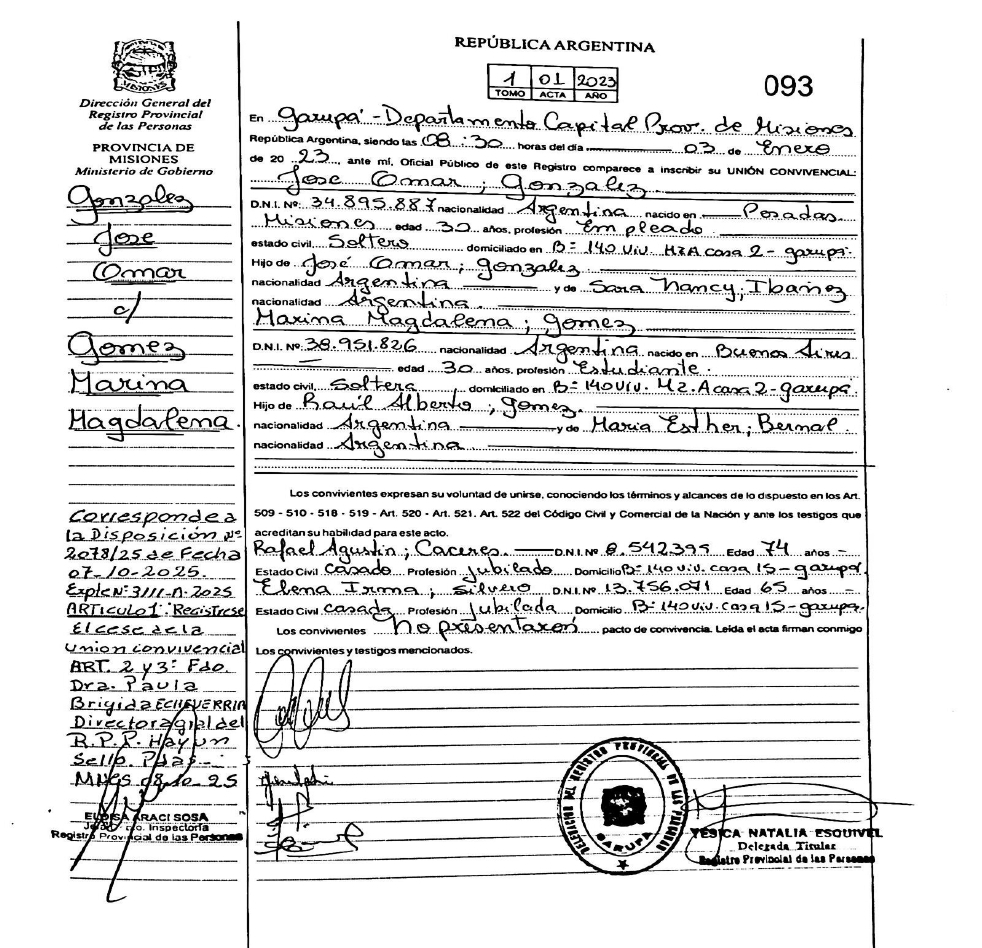 MISIONES
Dirección General del
Registro Provincial
de las Personas
PROVINCIA DE
MISIONES
Ministerio de Gobierno
Gonzalez
Jose
Omar
c/
Gomez
Marina
Magdalena.
Corresponde a
la Disposición Nº
2078/25 de Fecha
07-10-2025.
Expte Nº 3111-A-2025
ARTICULO 1: Regístrese
El cese de la
Union convivencial
ART. 2 y 3: Fdo.
Dra. Paula
Brigida ECHEVERRIA
Directora gral del
R.P.P. Hay un
Sello. Pdas.-
MNES 08-10-25
ELOISA ARACI SOSA
Inspectoria
Registro Provincial de las Personas
REPÚBLICA ARGENTINA
1 01 2023
TOMO ACTA AÑO
093
En Garupá - Departamento Capital Prov. de Misiones
República Argentina, siendo las 08:30 horas del día 03 de Enero
de 20 23, ante mí, Oficial Público de este Registro comparece a inscribir su UNIÓN CONVIVENCIAL:
Jose Omar; Gonzalez
D.N.I. Nº. 34.895.887 nacionalidad Argentina nacido en Posadas
Misiones edad 30 años, profesión Empleado
estado civil Soltero domiciliado en Bº 140 Viv. MzA casa 2 - garupá.
Hijo de José Omar; gonzalez
nacionalidad Argentina y de Sara Nancy; Ibañez
nacionalidad Argentina
Marina Magdalena; gomez
D.N.I. Nº. 38.951.826 nacionalidad Argentina nacido en Buenos Aires
edad 30 años, profesión Estudiante.
estado civil Soltera, domiciliado en Bº 140 Viv. Mz. A casa 2 - garupá.
Hijo de Raúl Alberto; gomez.
nacionalidad Argentina y de Maria Esther; Bernal.
nacionalidad Argentina
Los convivientes expresan su voluntad de unirse, conociendo los términos y alcances de lo dispuesto en los Art.
509 - 510 - 518 - 519 - Art. 520 - Art. 521. Art. 522 del Código Civil y Comercial de la Nación y ante los testigos que
acreditan su habilidad para este acto.
Rafael Agustin; Caceres. D.N.I. Nº 8.542395 Edad 74 años -
Estado Civil Casado Profesión Jubilado Domicilio Bº 140 viv. casa 15 - garupá
Elena Irma; Silvero D.N.I. Nº 13.756.071 Edad 65 años -
Estado Civil Casada Profesión Jubilada Domicilio Bº 140 viv. casa 15 - garupá.
Los convivientes No presentaron pacto de convivencia. Leída el acta firman conmigo
Los convivientes y testigos mencionados.
DELEGACION DEL REGISTRO PROVINCIAL DE LAS PERSONAS
GARUPA
YESICA NATALIA ESQUIVEL
Delegada Titular
Registro Provincial de las Personas